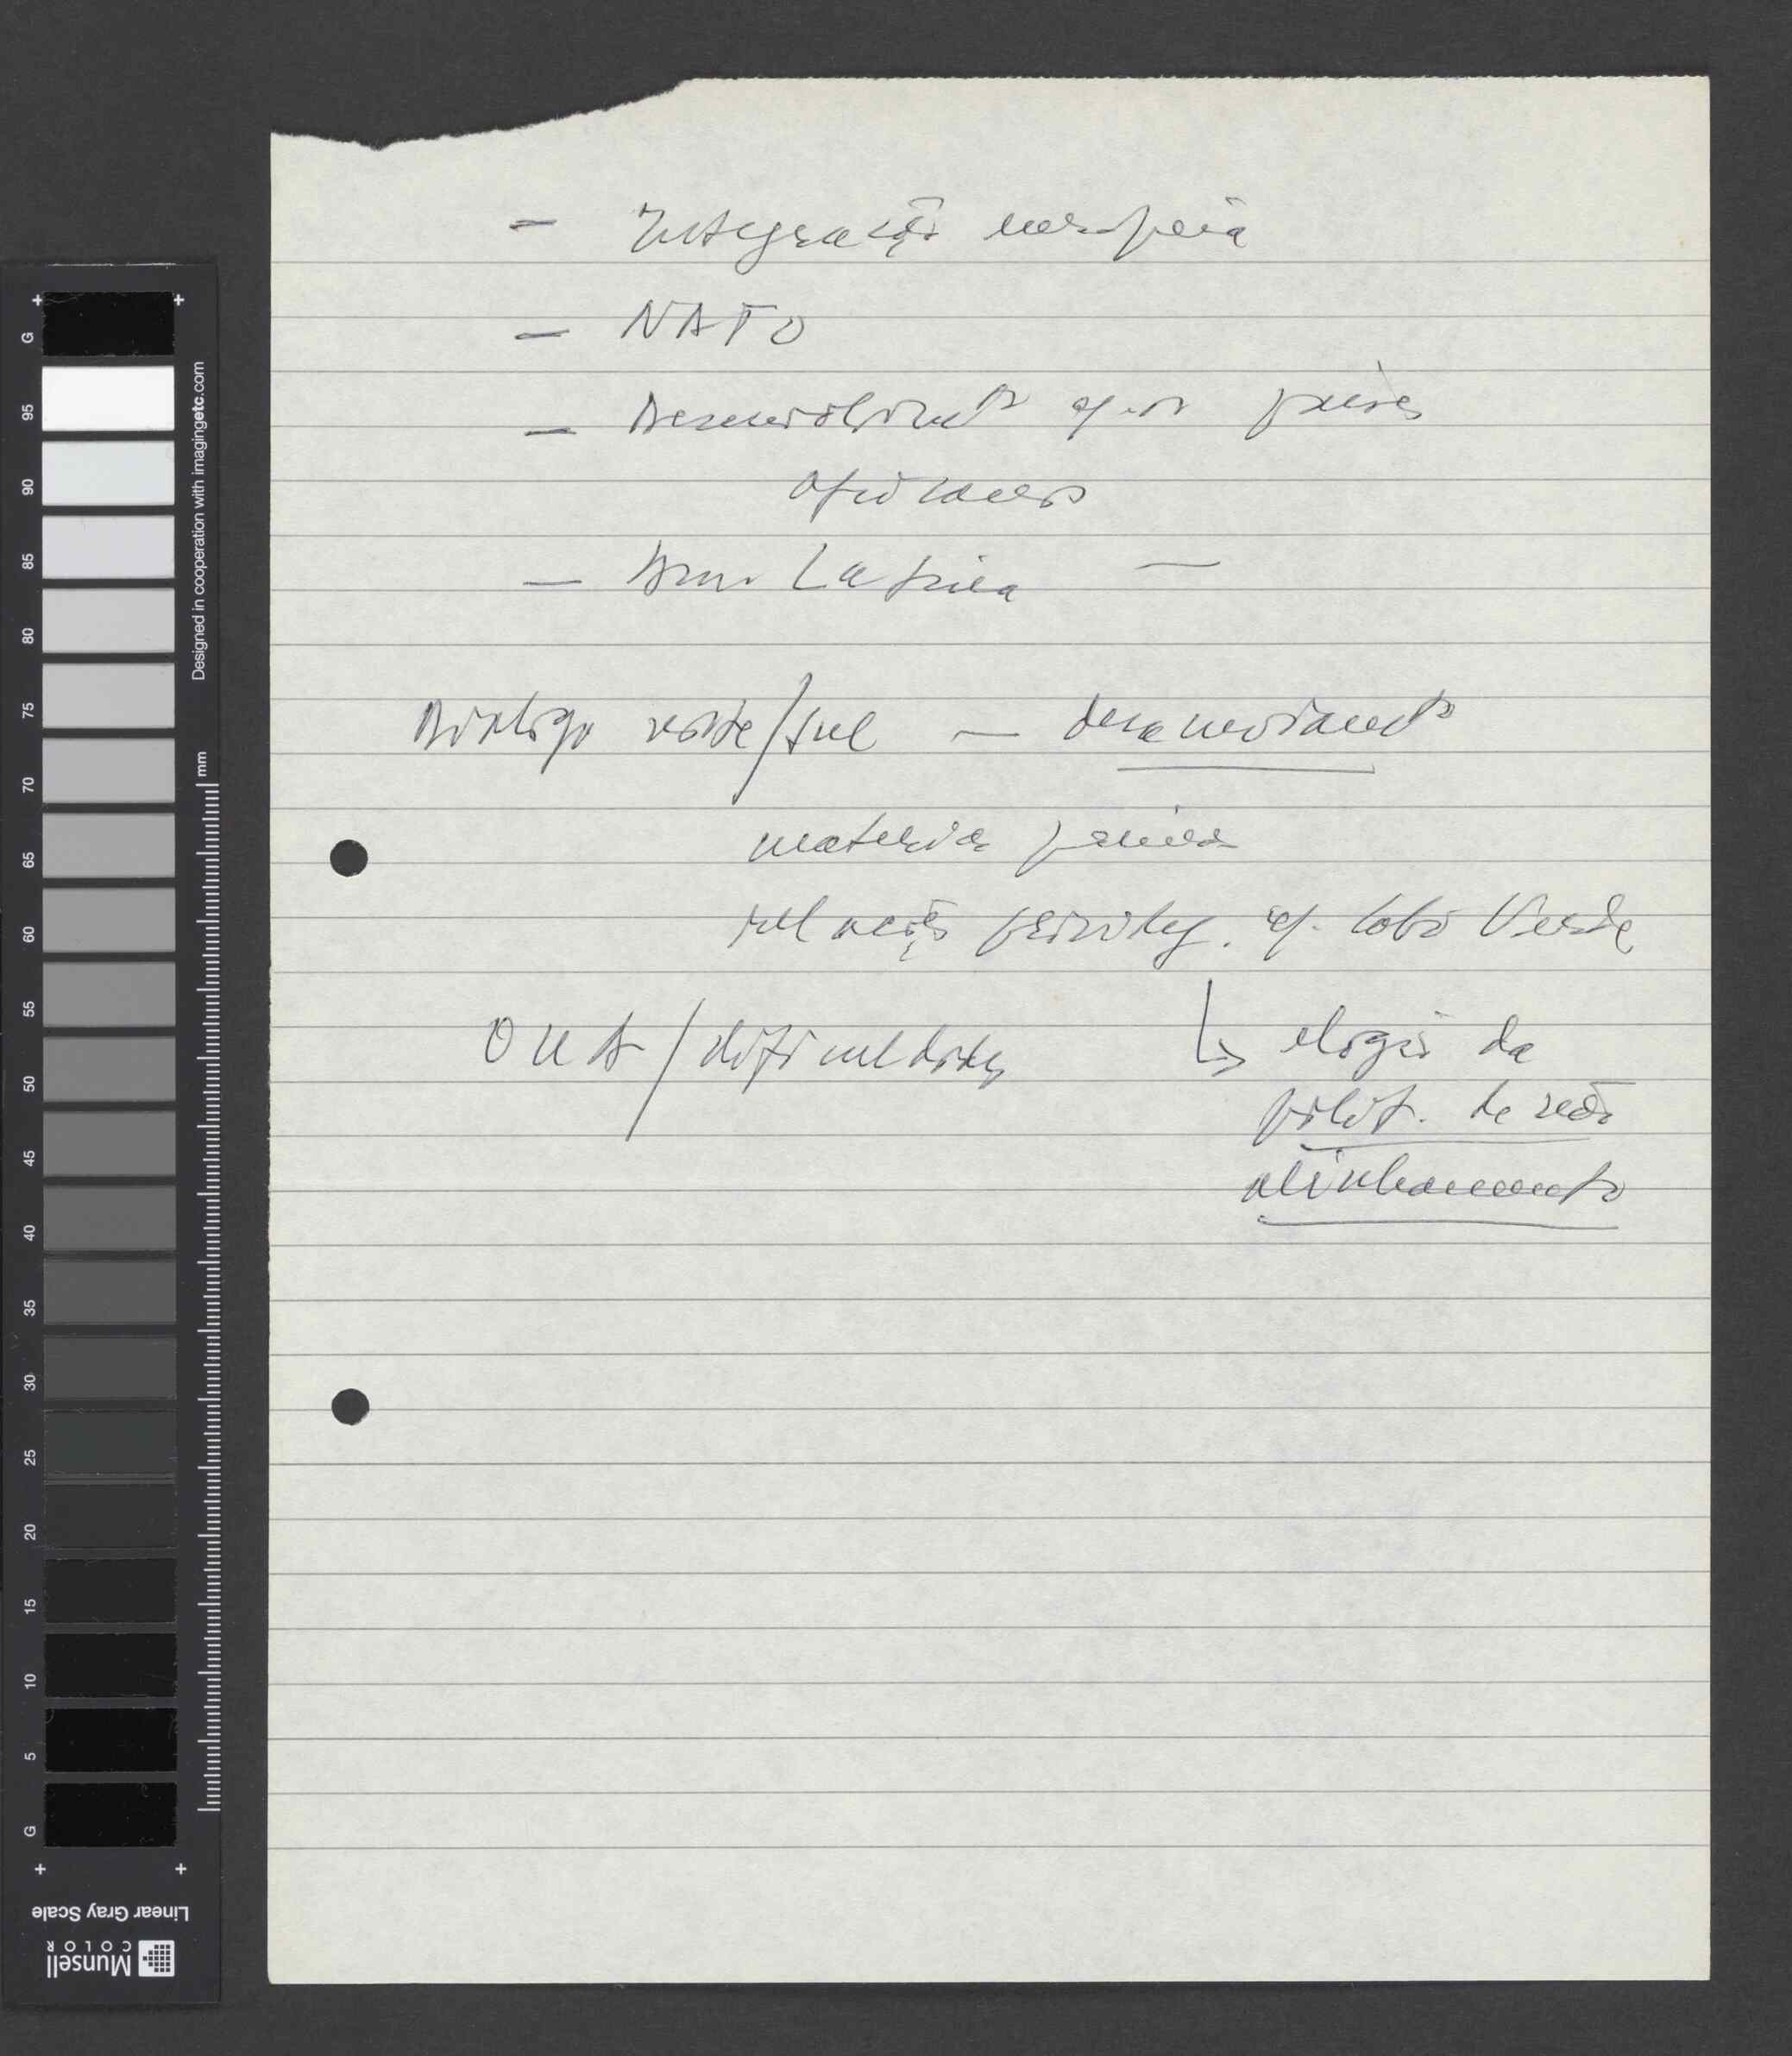 - Integração europeia
- NATO
- Desenvolvimto c/ os países
africanos
- Am. Latina -
Diálogo norte/sul -
matérias primas
relações privileg. c/ Cabo Verde
OUA / dificuldades
↳ elogio da
polít. de não
alinhamento
G
95
90
85
80
75
70
65
60
55
50
45
40
35
30
25
20
15
10
5
G
mm
Designed in cooperation with imagingetc.com
Linear Gray Scale
Munsell
COLOR